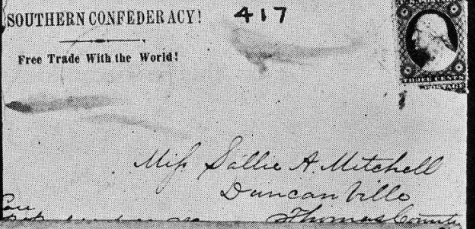 SOUTHERN CONFEDERACY!
417
Free Trade With the World!
THREE CENTS
Miss Sallie A. Mitchell
Duncanville
Thomas County
Care